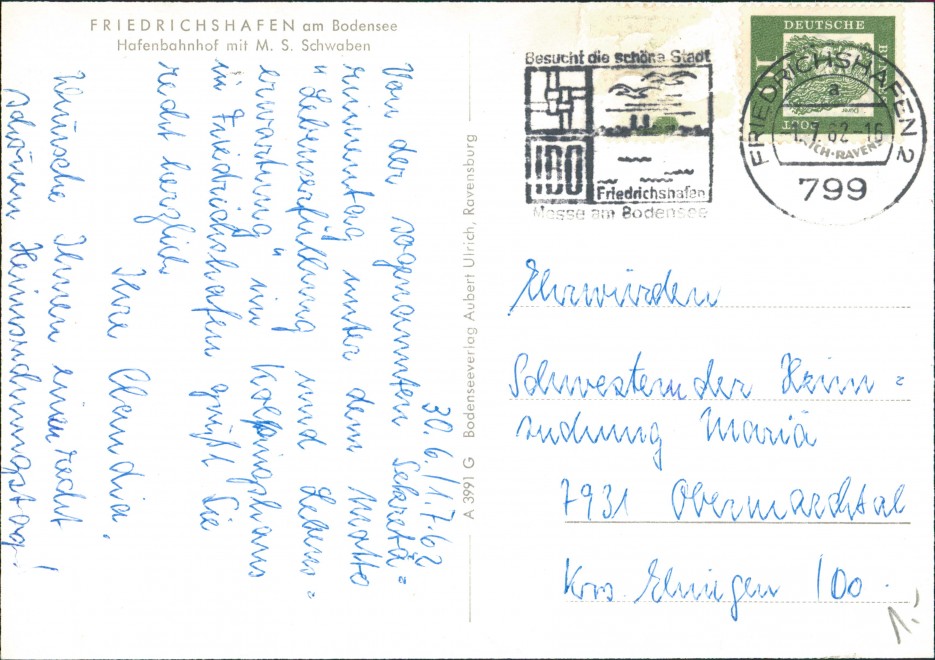 FRIEDRICHSHAFEN am Bodensee
Hafenbahnhof mit M. S. Schwaben
30.6./1.7.62
Von der sogenannten Sekretä=
rinnentag unter dem Motto
"Lebenserfüllung und Lebens=
erwartung" im Kolpinghaus
in Friedrichshafen grüßt Sie
recht herzlich
Ihre Claudia.
Wünsche Ihnen einen recht
schönen Heimsuchungstag!
A 3991 G Bodenseeverlag Aubert Ulrich, Ravensburg
Besucht die schöne Stadt
IBO
Friedrichshafen
Messe am Bodensee
DEUTSCHE
POST
FRIEDRICHSHAFEN 2
a
-1.7.62-16
799
Ehrwürden
Schwestern der Heim=
suchung Mariä
7931 Obermarchtal
Krs Ehingen /Do.
1.-